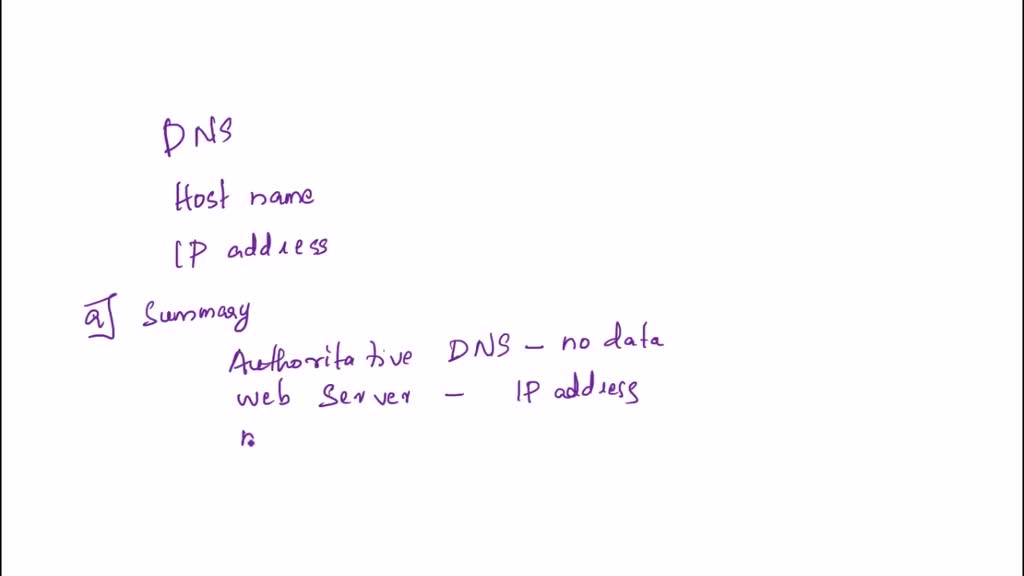 DNS
Host name
IP address
a] Summary
Authoritative DNS - no data
web Server - IP address
n